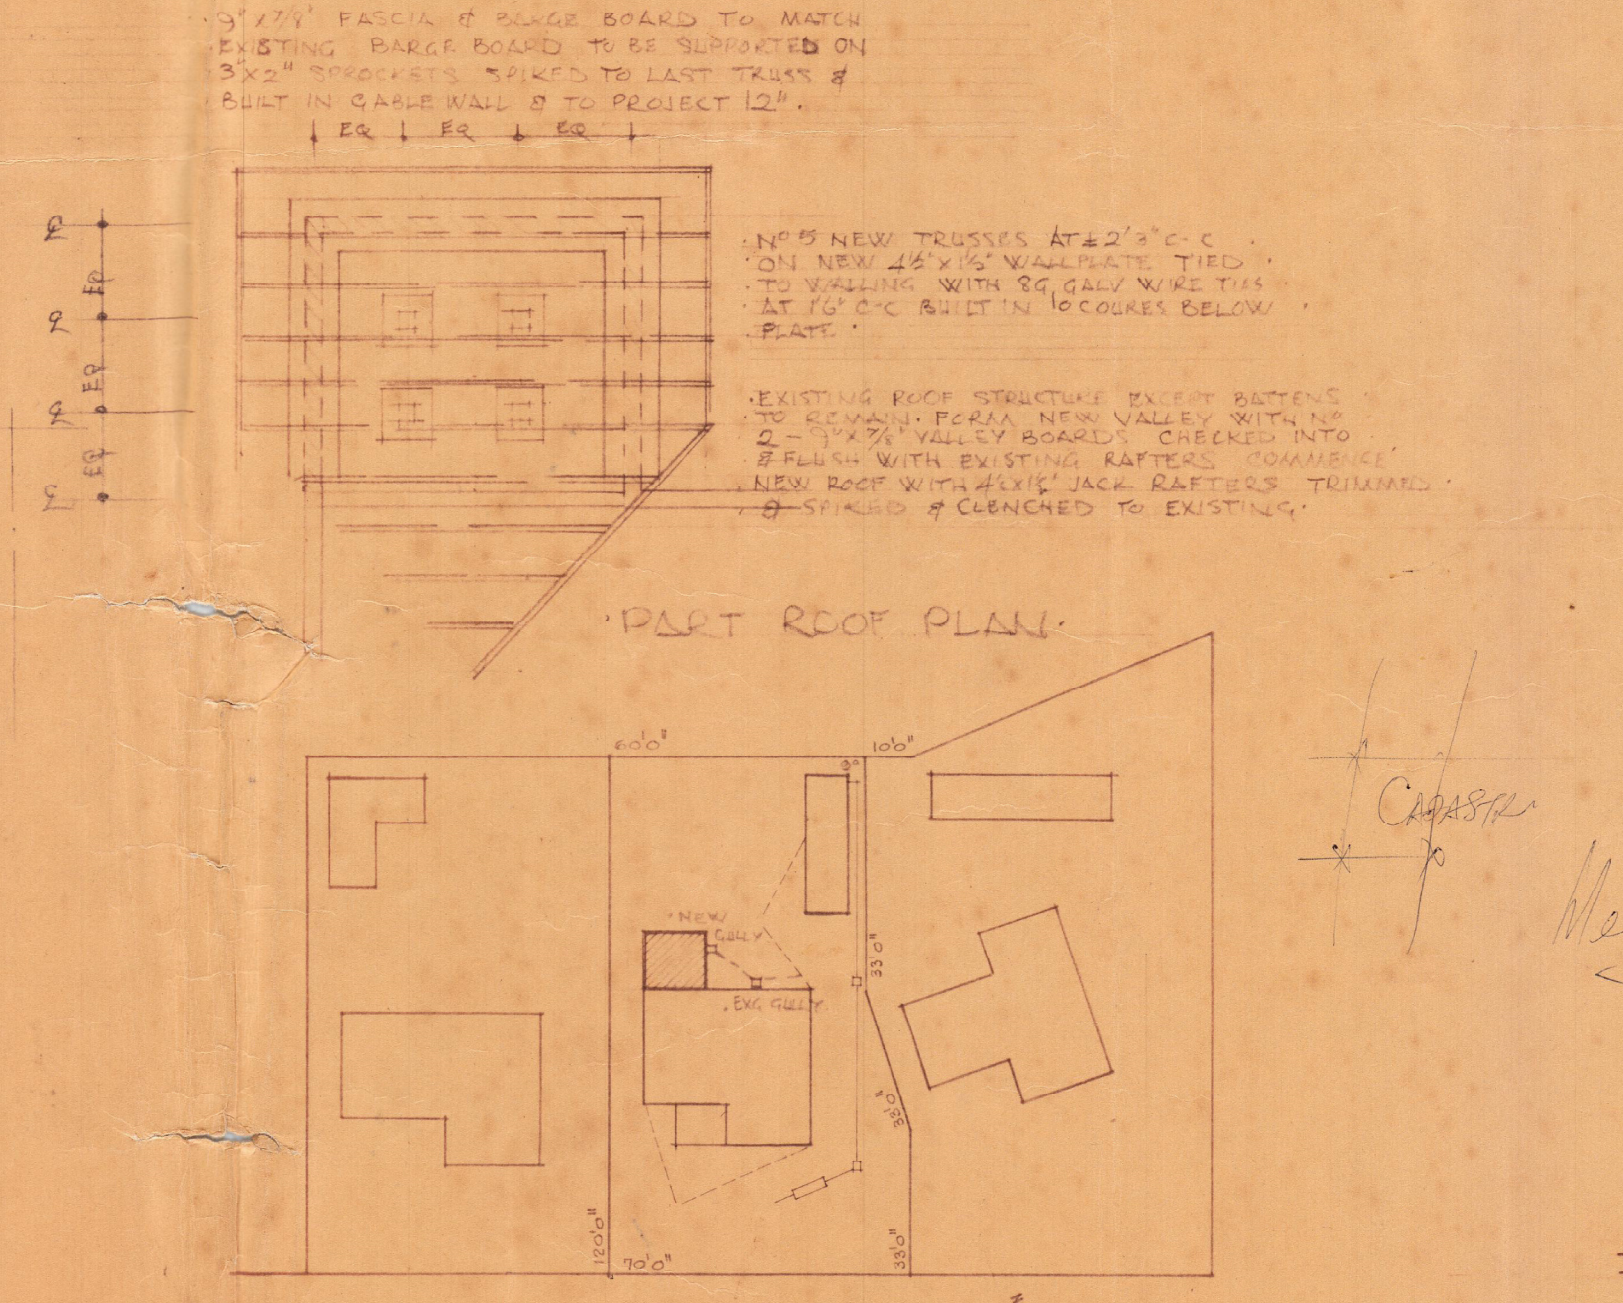 9"x7/8" FASCIA & BARGE BOARD TO MATCH
EXISTING BARGE BOARD TO BE SUPPORTED ON
3"x2" SPROCKETS SPIKED TO LAST TRUSS &
BUILT IN GABLE WALL & TO PROJECT 12".
EQ EQ EQ
℄
EQ
℄
EQ
℄
EQ
℄
·Nº 5 NEW TRUSSES AT ± 2'3" C-C ·
·ON NEW 4½"x1½" WALLPLATE TIED ·
·TO WALLING WITH 8G GALV WIRE TIES
·AT 1'6" C-C BUILT IN 10 COURES BELOW ·
·PLATE ·
·EXISTING ROOF STRUCTURE EXCEPT BATTENS
·TO REMAIN· FORM NEW VALLEY WITH Nº
2 - 9"x7/8" VALLEY BOARDS CHECKED INTO ·
·& FLUSH WITH EXISTING RAFTERS COMMENCE
NEW ROOF WITH 4½x1½" JACK RAFTERS TRIMMED ·
· & SPIKED & CLENCHED TO EXISTING·
·PART ROOF PLAN·
60'0"
10'0"
CADASTR
·NEW
GULLY
33'0"
·EXG GULLY·
33'0"
120'0"
70'0"
33'0"